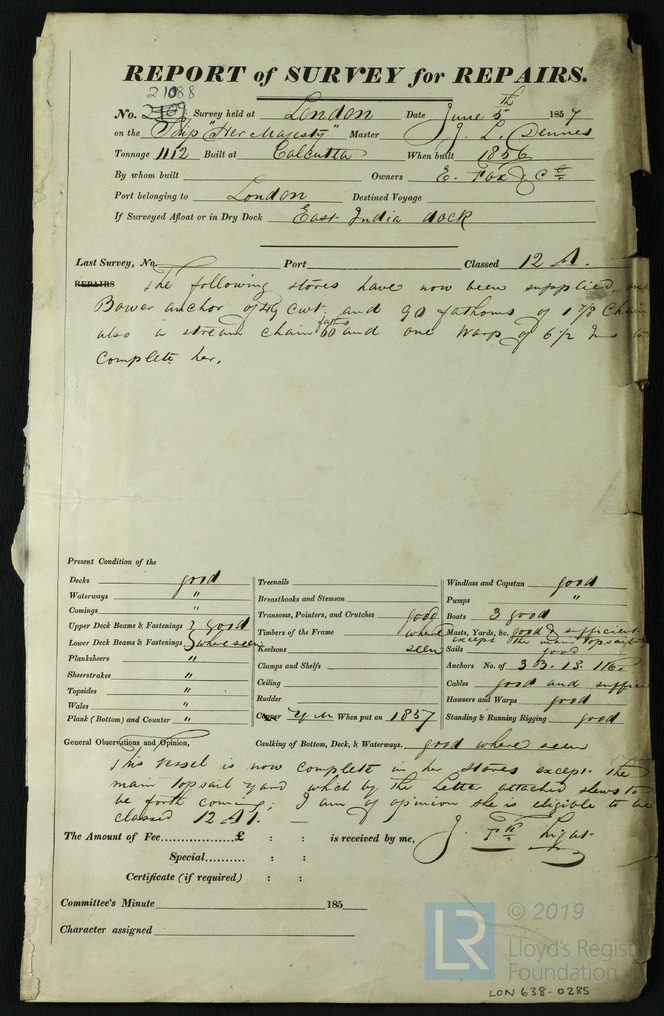 REPORT of SURVEY for REPAIRS.
21088
No. 2109 Survey held at London Date June 5th 1857
on the Ship "Her Majesty" Master J. L. Dennes
Tonnage 1112 Built at Calcutta When built 1856
By whom built Owners E. Fox & Co.
Port belonging to London Destined Voyage
If Surveyed Afloat or in Dry Dock East India dock
Last Survey, No. Port Classed 12 A.
REPAIRS The following stores have now been supplied, one
Bower anchor of cwt. and 90 fathoms of 1 7/8 Chain
also a stream chain 60 faths and one Warp of 6 1/2 Ins to
Complete her.
Present Condition of the
Decks good
Waterways "
Comings "
Upper Deck Beams & Fastenings } good
Lower Deck Beams & Fastenings } where seen
Planksheers "
Sheerstrakes "
Topsides "
Wales "
Plank (Bottom) and Counter "
Treenails
Breasthooks and Stemson
Transoms, Pointers, and Crutches good
Timbers of the Frame where
Keelsons seen
Clamps and Shelfs
Ceiling
Rudder
Copper Y M When put on 1857
Windlass and Capstan good
Pumps "
Boats 3 good
Masts, Yards, &c. good & sufficient
except the main topsail
Sails good
Anchors No. of 3 B. 1 S. 1 K.
Cables good and suffici
Hawsers and Warps good
Standing & Running Rigging good
General Observations and Opinion, Caulking of Bottom, Deck, & Waterways. good where seen
This vessel is now complete in her stores except the
main topsail yard which by the Letter attached shews to
be forth coming; I am of opinion she is eligible to be
classed 12 A 1.
The Amount of Fee £ : : is received by me, J. Light
Special : :
Certificate (if required) : :
Committee's Minute 185
Character assigned
LR
© 2019
Lloyd's Register
Foundation
LON 638-0285